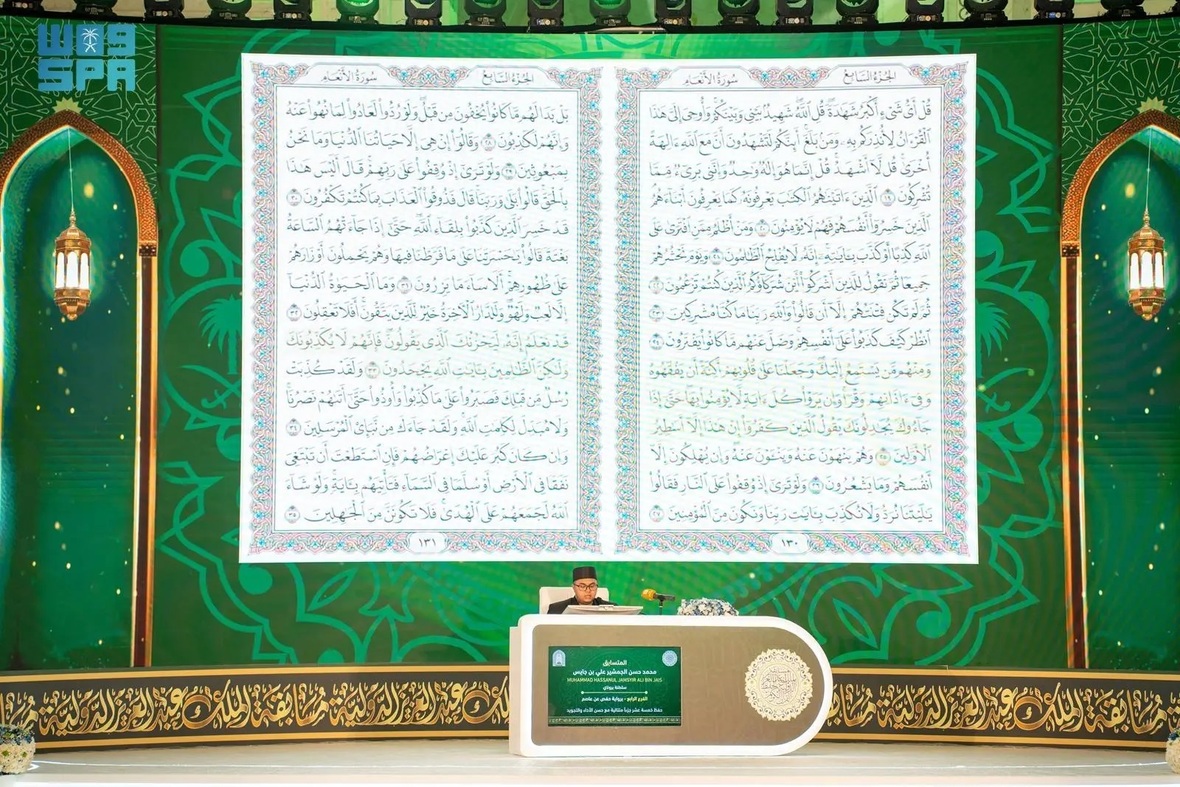 WAS
SPA
الجُزْءُ السَّابِعُ سُورَةُ الأَنْعَامِ
قُلْ أَيُّ شَيْءٍ أَكْبَرُ شَهَٰدَةًۖ قُلِ ٱللَّهُۖ شَهِيدٌۢ بَيْنِي وَبَيْنَكُمْۚ وَأُوحِيَ إِلَيَّ هَٰذَا
ٱلْقُرْءَانُ لِأُنذِرَكُم بِهِۦ وَمَنۢ بَلَغَۚ أَئِنَّكُمْ لَتَشْهَدُونَ أَنَّ مَعَ ٱللَّهِ ءَالِهَةً
أُخْرَىٰۚ قُل لَّآ أَشْهَدُۚ قُلْ إِنَّمَا هُوَ إِلَٰهٌ وَٰحِدٌ وَإِنَّنِي بَرِيٓءٌ مِّمَّا
تُشْرِكُونَ ١٩ ٱلَّذِينَ ءَاتَيْنَٰهُمُ ٱلْكِتَٰبَ يَعْرِفُونَهُۥ كَمَا يَعْرِفُونَ أَبْنَآءَهُمُۘ
ٱلَّذِينَ خَسِرُوٓا۟ أَنفُسَهُمْ فَهُمْ لَا يُؤْمِنُونَ ٢٠ وَمَنْ أَظْلَمُ مِمَّنِ ٱفْتَرَىٰ عَلَى
ٱللَّهِ كَذِبًا أَوْ كَذَّبَ بِـَٔايَٰتِهِۦٓۗ إِنَّهُۥ لَا يُفْلِحُ ٱلظَّٰلِمُونَ ٢١ وَيَوْمَ نَحْشُرُهُمْ
جَمِيعًا ثُمَّ نَقُولُ لِلَّذِينَ أَشْرَكُوٓا۟ أَيْنَ شُرَكَآؤُكُمُ ٱلَّذِينَ كُنتُمْ تَزْعُمُونَ ٢٢
ثُمَّ لَمْ تَكُن فِتْنَتُهُمْ إِلَّآ أَن قَالُوا۟ وَٱللَّهِ رَبِّنَا مَا كُنَّا مُشْرِكِينَ ٢٣
ٱنظُرْ كَيْفَ كَذَبُوا۟ عَلَىٰٓ أَنفُسِهِمْۚ وَضَلَّ عَنْهُم مَّا كَانُوا۟ يَفْتَرُونَ ٢٤
وَمِنْهُم مَّن يَسْتَمِعُ إِلَيْكَۖ وَجَعَلْنَا عَلَىٰ قُلُوبِهِمْ أَكِنَّةً أَن يَفْقَهُوهُ
وَفِيٓ ءَاذَانِهِمْ وَقْرًاۚ وَإِن يَرَوْا۟ كُلَّ ءَايَةٍ لَّا يُؤْمِنُوا۟ بِهَاۖ حَتَّىٰٓ إِذَا
جَآءُوكَ يُجَٰدِلُونَكَ يَقُولُ ٱلَّذِينَ كَفَرُوٓا۟ إِنْ هَٰذَآ إِلَّآ أَسَٰطِيرُ
ٱلْأَوَّلِينَ ٢٥ وَهُمْ يَنْهَوْنَ عَنْهُ وَيَنْـَٔوْنَ عَنْهُۖ وَإِن يُهْلِكُونَ إِلَّآ
أَنفُسَهُمْ وَمَا يَشْعُرُونَ ٢٦ وَلَوْ تَرَىٰٓ إِذْ وُقِفُوا۟ عَلَى ٱلنَّارِ فَقَالُوا۟
يَٰلَيْتَنَا نُرَدُّ وَلَا نُكَذِّبَ بِـَٔايَٰتِ رَبِّنَا وَنَكُونَ مِنَ ٱلْمُؤْمِنِينَ ٢٧
١٣٠
الجُزْءُ السَّابِعُ سُورَةُ الأَنْعَامِ
بَلْ بَدَا لَهُم مَّا كَانُوا۟ يُخْفُونَ مِن قَبْلُۖ وَلَوْ رُدُّوا۟ لَعَادُوا۟ لِمَا نُهُوا۟ عَنْهُ
وَإِنَّهُمْ لَكَٰذِبُونَ ٢٨ وَقَالُوٓا۟ إِنْ هِيَ إِلَّا حَيَاتُنَا ٱلدُّنْيَا وَمَا نَحْنُ
بِمَبْعُوثِينَ ٢٩ وَلَوْ تَرَىٰٓ إِذْ وُقِفُوا۟ عَلَىٰ رَبِّهِمْۚ قَالَ أَلَيْسَ هَٰذَا
بِٱلْحَقِّۚ قَالُوا۟ بَلَىٰ وَرَبِّنَاۚ قَالَ فَذُوقُوا۟ ٱلْعَذَابَ بِمَا كُنتُمْ تَكْفُرُونَ ٣٠
قَدْ خَسِرَ ٱلَّذِينَ كَذَّبُوا۟ بِلِقَآءِ ٱللَّهِۖ حَتَّىٰٓ إِذَا جَآءَتْهُمُ ٱلسَّاعَةُ
بَغْتَةً قَالُوا۟ يَٰحَسْرَتَنَا عَلَىٰ مَا فَرَّطْنَا فِيهَا وَهُمْ يَحْمِلُونَ أَوْزَارَهُمْ
عَلَىٰ ظُهُورِهِمْۚ أَلَا سَآءَ مَا يَزِرُونَ ٣١ وَمَا ٱلْحَيَوٰةُ ٱلدُّنْيَآ
إِلَّا لَعِبٌ وَلَهْوٌۖ وَلَلدَّارُ ٱلْءَاخِرَةُ خَيْرٌ لِّلَّذِينَ يَتَّقُونَۚ أَفَلَا تَعْقِلُونَ ٣٢
قَدْ نَعْلَمُ إِنَّهُۥ لَيَحْزُنُكَ ٱلَّذِي يَقُولُونَۖ فَإِنَّهُمْ لَا يُكَذِّبُونَكَ
وَلَٰكِنَّ ٱلظَّٰلِمِينَ بِـَٔايَٰتِ ٱللَّهِ يَجْحَدُونَ ٣٣ وَلَقَدْ كُذِّبَتْ
رُسُلٌ مِّن قَبْلِكَ فَصَبَرُوا۟ عَلَىٰ مَا كُذِّبُوا۟ وَأُوذُوا۟ حَتَّىٰٓ أَتَىٰهُمْ نَصْرُنَاۚ
وَلَا مُبَدِّلَ لِكَلِمَٰتِ ٱللَّهِۚ وَلَقَدْ جَآءَكَ مِن نَّبَإِي۟ ٱلْمُرْسَلِينَ ٣٤
وَإِن كَانَ كَبُرَ عَلَيْكَ إِعْرَاضُهُمْ فَإِنِ ٱسْتَطَعْتَ أَن تَبْتَغِيَ
نَفَقًا فِي ٱلْأَرْضِ أَوْ سُلَّمًا فِي ٱلسَّمَآءِ فَتَأْتِيَهُم بِـَٔايَةٍۚ وَلَوْ شَآءَ
ٱللَّهُ لَجَمَعَهُمْ عَلَى ٱلْهُدَىٰۚ فَلَا تَكُونَنَّ مِنَ ٱلْجَٰهِلِينَ ٣٥
١٣١
المتسابق
محمد حسن الجمشير علي بن جايس
MUHAMMAD HASSANUL JAMSYIR ALI BIN JAIS
سلطنة بروناي
الفرع الرابع - برواية حفص عن عاصم
حفظ خمسة عشر جزءاً متتالية مع حسن الأداء والتجويد
مسابقة الملك عبدالعزيز الدولية
مسابقة الملك عبدالعزيز الدولية